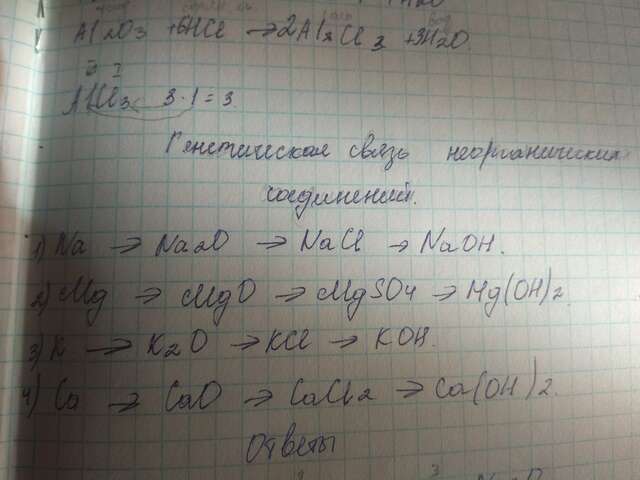 Al2O3 + 6HCl → 2Al2Cl3 + 3H2O.
3 I
AlCl3 3·1=3.
Генетическая связь неорганических
соединений.
1) Na → Na2O → NaCl → NaOH.
2) Mg → MgO → MgSO4 → Mg(OH)2.
3) K → K2O → KCl → KOH.
4) Ca → CaO → CaCl2 → Ca(OH)2.
Ответы